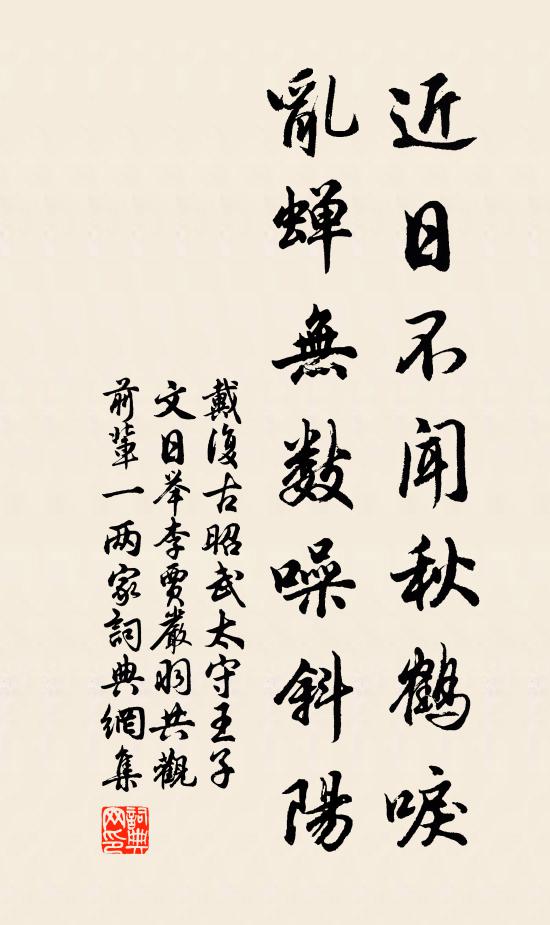 近日不闻秋鶴唳
亂蝉無数噪斜陽
戴復古昭武太守王子
文日举李賈嚴羽共觀
前輩一两家詞典網集
詞典网印